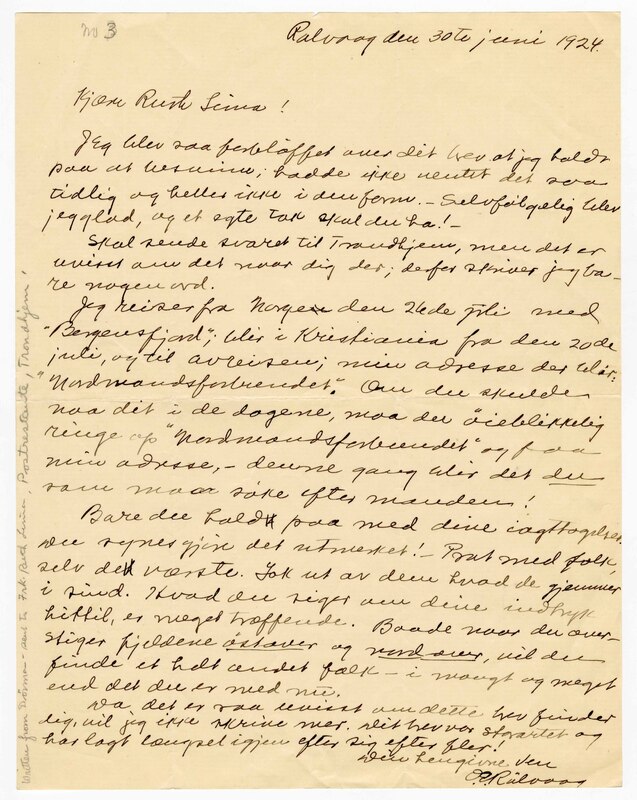 No 3
Ralvaag den 30te juni 1924.
Kjære Ruth Lima!
Jeg blev saa forbløffet over dit brev at jeg holdt
paa at besvime; hadde ikke ventet det saa
tidlig og heller ikke i den form. – Selvfølgelig blev
jeg glad, og et egte tak skal du ha! –
Skal sende svaret til Trondhjem, men det er
uvisst om det naar dig der; derfor skriver jeg ba-
re nogen ord.
Jeg reiser fra Norge den 26de juli med
"Bergensfjord"; blir i Kristiania fra den 20de
juli, og til avreisen; min adresse der blir:
"Nordmandsforbundet". Om du skulde
naa dit i de dagene, maa du öieblikkelig
ringe op "Nordmandsforbundet" og faa
min adresse, – denne gang blir det du
som maa söke efter manden!
Bare du holdt paa med dine iagttagelser.
Du synes gjöre det utmerket! – Prat med folk,
selv det værste. Lok ut av dem hvad de gjemmer
i sind. Hvad du siger om dine indtryk
hittil, er meget træffende. Baade naar du over-
stiger fjeldene östover og nordover, vil du
finde et helt andet folk – i mangt og meget
end det du er med nu.
Da det er saa uvisst om dette brev finder
dig, vil jeg ikke skrive mer. Dit brev var storartet og
har lagt længsel igjen efter sig efter fler!
Din hengivne ven
O.E. Rölvaag
Written from Norway – sent to Frk. Ruth Lima, Postrestante, Trondhjem!